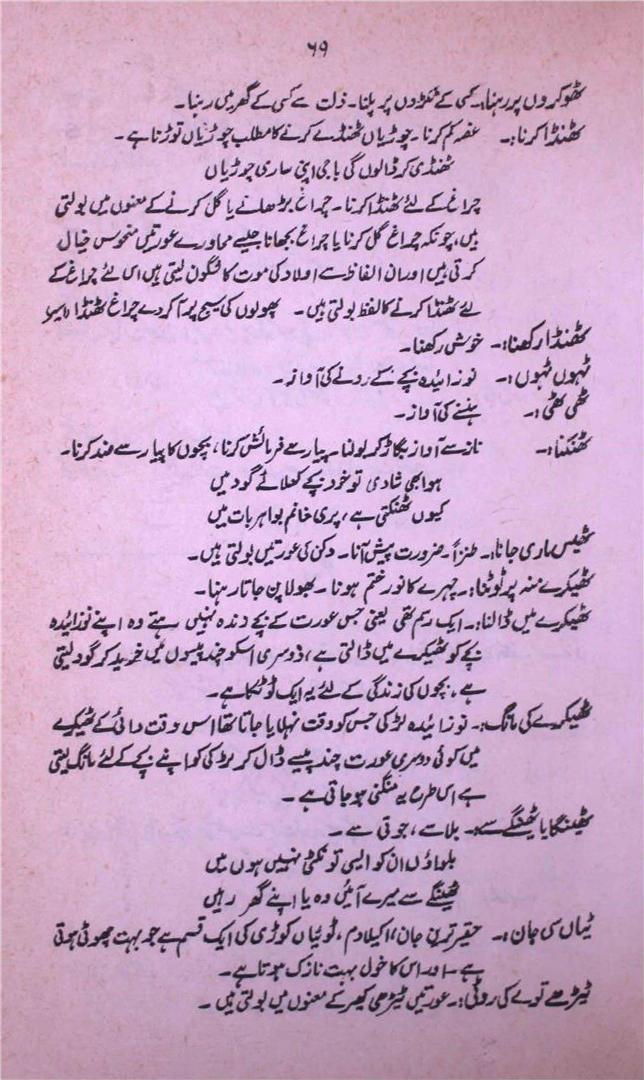 ۶۹
ٹھوکروں پر رہنا:۔ کسی کے ٹکڑوں پر پلنا۔ ذلت سے کسی کے گھر میں رہنا۔
ٹھنڈا کرنا:۔ غصہ کم کرنا۔ چوڑیاں ٹھنڈے کرنے کا مطلب چوڑیاں توڑنا ہے۔
ٹھنڈی کر ڈالوں گی باجی اپنی ساری چوڑیاں
چراغ کے لئے ٹھنڈا کرنا۔ چراغ بڑھانے یا گل کرنے کے معنوں میں بولتی
ہیں، چونکہ چراغ گل کرنا یا چراغ بجھانا جیسے محاورے عورتیں منحوس خیال
کرتی ہیں اور ان الفاظ سے اولاد کی موت کا شگون لیتی ہیں اس لئے چراغ کے
لئے ٹھنڈا کرنے کا لفظ بولتی ہیں۔ پھولوں کی سیج پر آ کر دے چراغ ٹھنڈا
ٹھنڈا رکھنا:۔ خوش رکھنا۔
ٹہوں ٹہوں:۔ نوزائیدہ بچے کے رونے کی آواز۔
ٹھی ٹھی:۔ ہنسنے کی آواز۔
ٹھنکنا:۔ ناز سے آواز بگاڑ کر بولنا۔ پیار سے فرمائش کرنا، بچوں کا پیار سے ضد کرنا۔
ہوا بھی شادی تو خود بچے کھلائے گود میں
کیوں ٹھنکتی ہے، پری خانم بوا ہر بات میں
ٹھیس ماری جانا:۔ طنزاً۔ ضرورت پیش آنا۔ دکن کی عورتیں بولتی ہیں۔
ٹھیکرے منہ پر ٹوٹنا:۔ چہرے کا نور ختم ہونا۔ بھولا پن جاتا رہنا۔
ٹھیکرے میں ڈالنا:۔ ایک رسم تھی یعنی جس عورت کے بچے زندہ نہیں رہتے وہ اپنے نوزائیدہ
بچے کو ٹھیکرے میں ڈالتی ہے، دوسری اسکو چند پیسوں میں خرید کر گود لیتی
ہے، بچوں کی زندگی کے لئے یہ ایک ٹوٹکا ہے۔
ٹھیکرے کی مانگ:۔ نوزائیدہ لڑکی جس کو وقت نہلایا جاتا تھا اس وقت دائی کے ٹھیکرے
میں کوئی دوسری عورت چند پیسے ڈال کر لڑکی کو اپنے بچے کے لئے مانگ لیتی
ہے اس طرح یہ منگنی ہو جاتی ہے۔
ٹھینگا یا ٹھینگے سے:۔ بلا سے، جوتی سے۔
بلواؤں ان کو ایسی تو نکٹی نہیں ہوں میں
ٹھینگے سے میرے آئیں وہ یا اپنے گھر رہیں
ٹیاں سی جان:۔ حقیر ترین جان، اکیلا دم، ٹوئیاں کوڑی کی ایک قسم ہے جو بہت چھوٹی ہوتی
ہے۔ اور اس کا خول بہت نازک ہوتا ہے۔
ٹیڑھے توے کی روٹی:۔ عورتیں ٹیڑھی کھیر کے معنوں میں بولتی ہیں۔